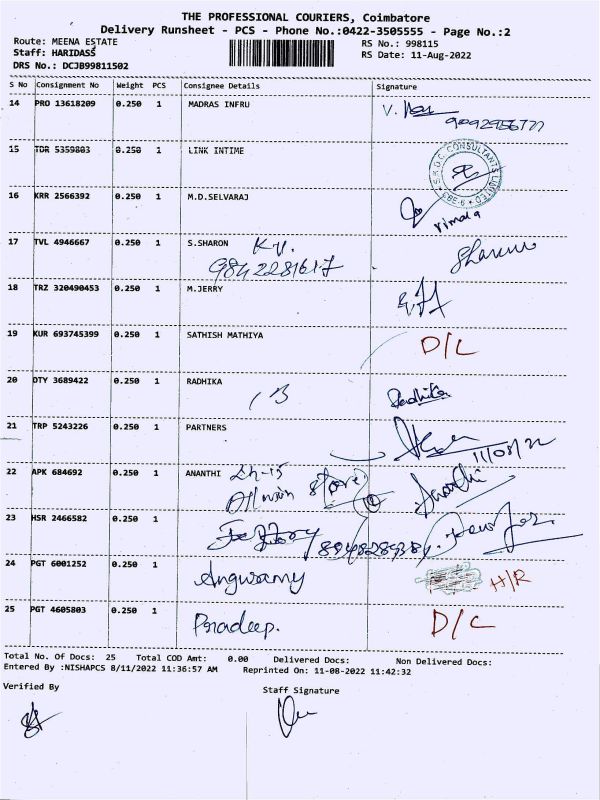 THE PROFESSIONAL COURIERS, Coimbatore
Delivery Runsheet - PCS - Phone No.:0422-3505555 - Page No.:2
Route: MEENA ESTATE RS No.: 998115
Staff: HARIDASS RS Date: 11-Aug-2022
DRS No.: DCJB99811502
S No Consignment No Weight PCS Consignee Details Signature
14 PRO 13618209 0.250 1 MADRAS INFRU
9092956777
15 TDR 5359803 0.250 1 LINK INTIME
S.K.D.C. CONSULTANTS LIMITED CBE-6
16 KRR 2566392 0.250 1 M.D.SELVARAJ
Vimala
17 TVL 4946667 0.250 1 S.SHARON
9842281617
18 TRZ 320490453 0.250 1 M.JERRY
19 KUR 693745399 0.250 1 SATHISH MATHIYA D/L
20 DTY 3689422 0.250 1 RADHIKA Radhika
21 TRP 5243226 0.250 1 PARTNERS
11/08/22
22 APK 684692 0.250 1 ANANTHI
23 HSR 2466582 0.250 1
24 PGT 6001252 0.250 1 Anguramy H/R
25 PGT 4605803 0.250 1 Pradeep. D/L
Total No. Of Docs: 25 Total COD Amt: 0.00 Delivered Docs: Non Delivered Docs:
Entered By :NISHAPCS 8/11/2022 11:36:57 AM Reprinted On: 11-08-2022 11:42:32
Verified By Staff Signature